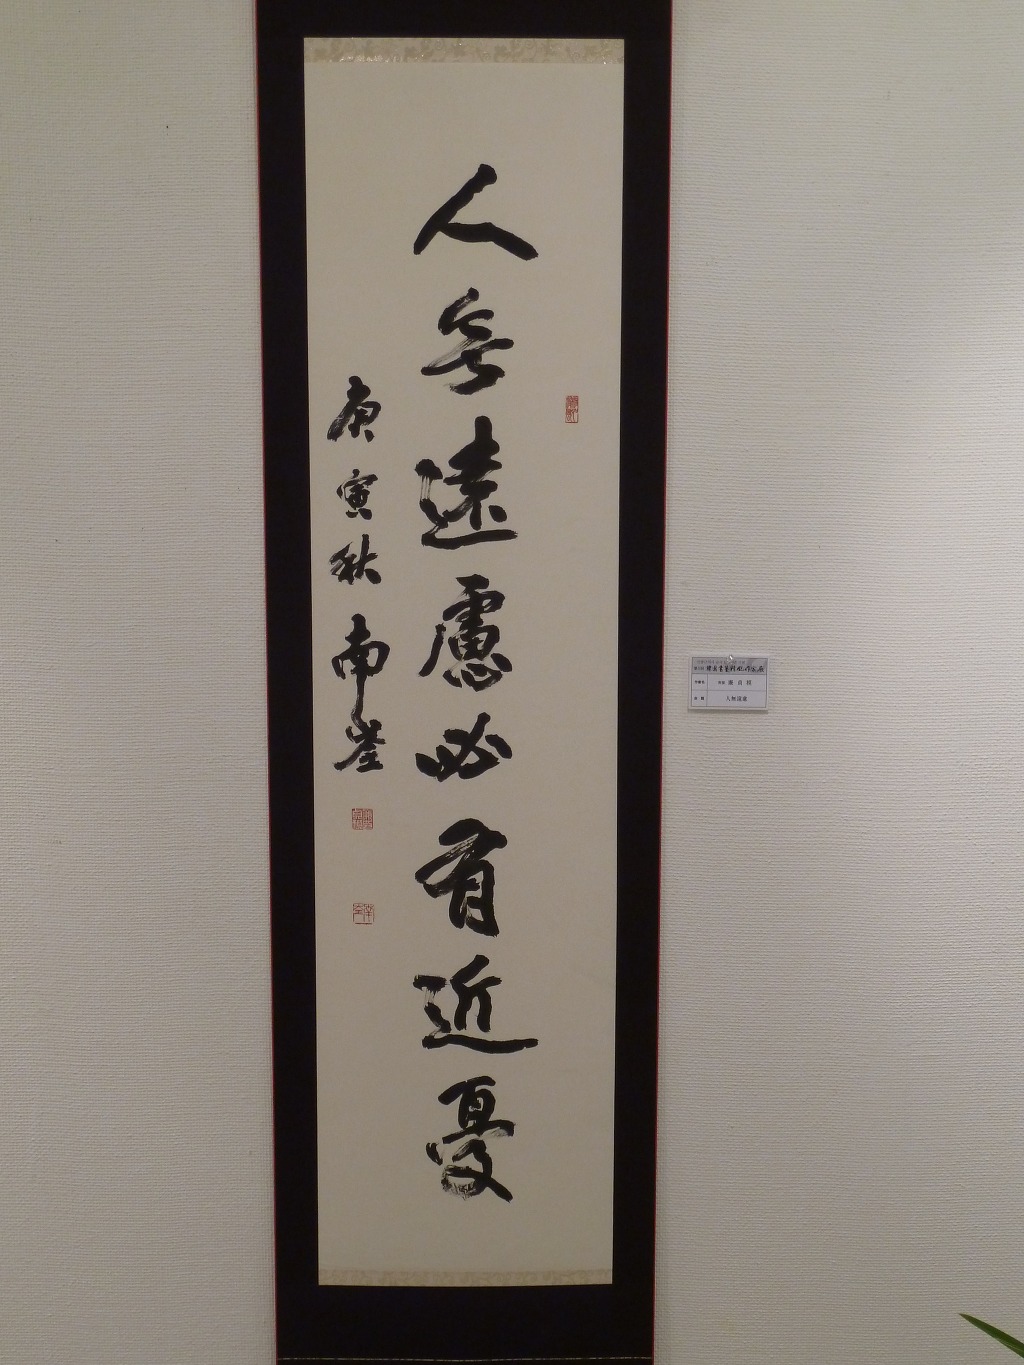 人無遠慮必有近憂
庚寅秋 南崖
人無遠慮